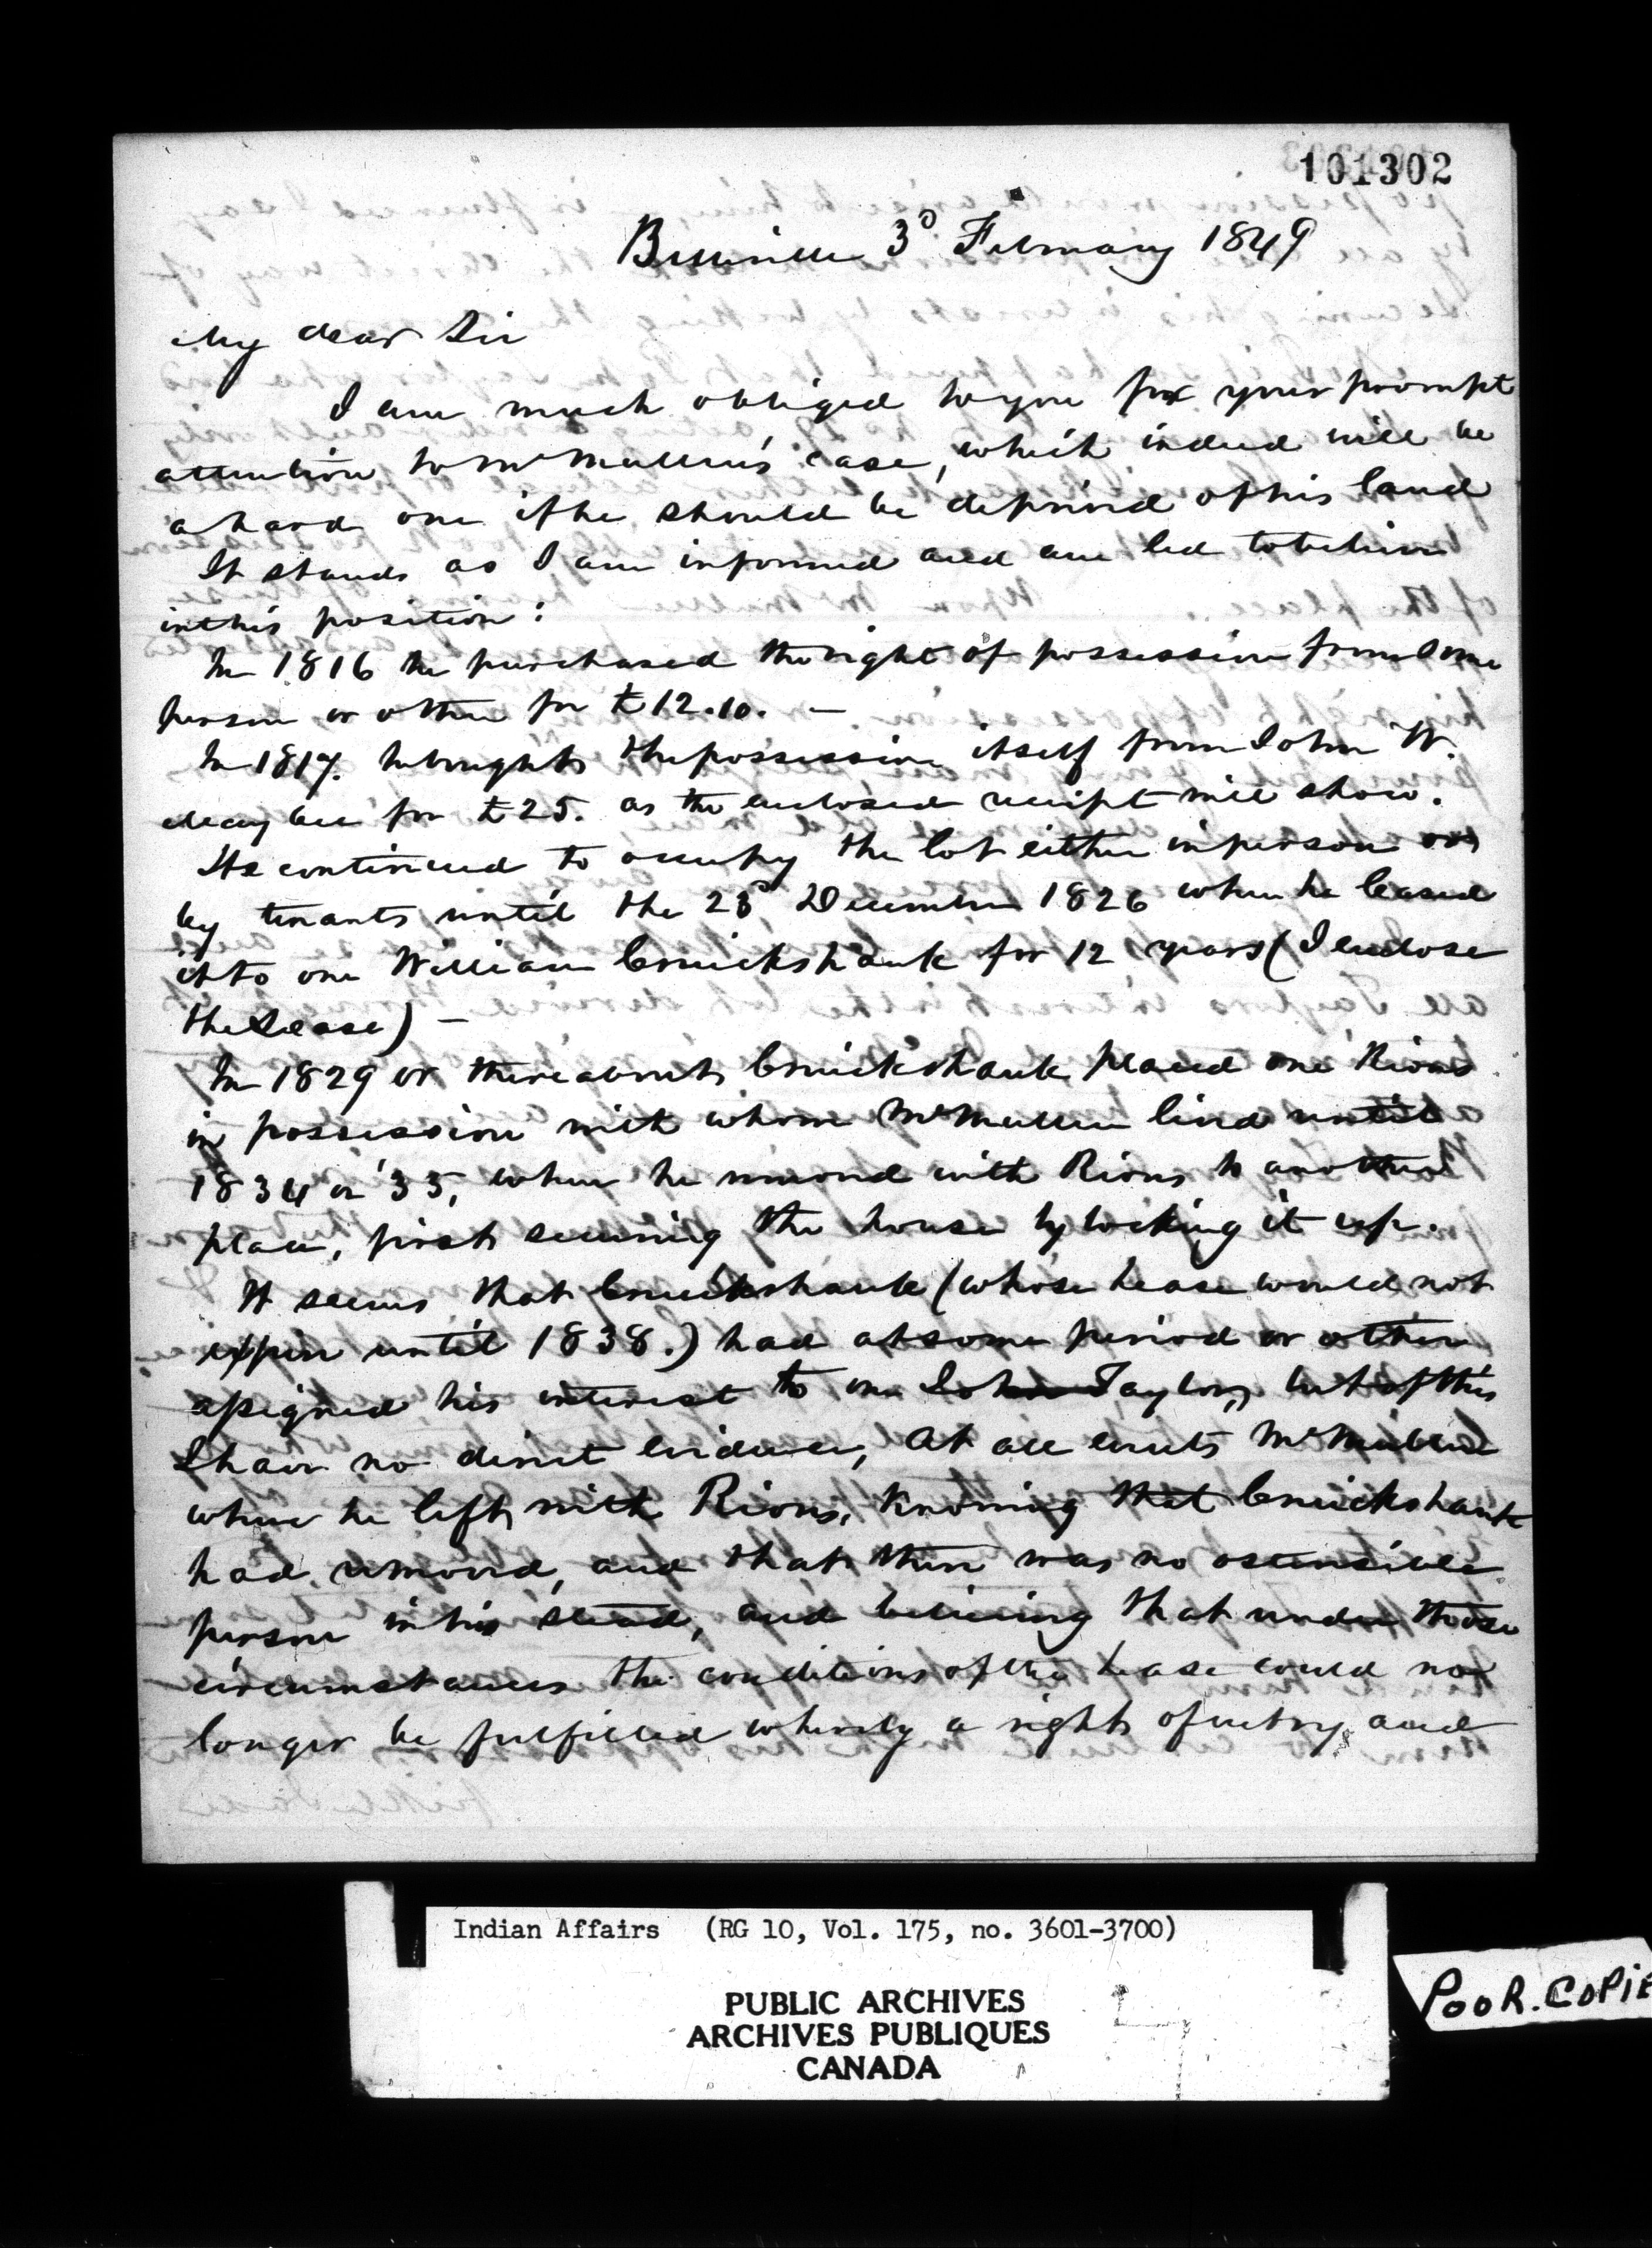 101302
Belleville 3d February 1849
My dear Sir
I am much obliged to you for your prompt
attention to McMullen's case, which indeed will be
a hard one if he should be deprived of his land
It stands as I am informed and am led to believe
in this position:
In 1816 he purchased the right of possession from some
person or other for £12.10. —
In 1817. he bought the possession itself from John W.
Maybee for £25. as the enclosed receipt will show.
He continued to occupy the lot either in person or
by tenants until the 23d December 1826 when he leased
it to one William Cruickshank for 12 years (I enclose
the Lease) —
In 1829 or thereabouts Cruickshank placed one Rions
in possession with whom McMullen lived until
1834 or '35, when he removed with Rions to another
place, first securing the house by locking it up.
It seems that Cruickshank (whose lease would not
expire until 1838.) had at some period or other
assigned his interest to one John Taylor, but of this
I have no direct evidence, at all events McMullen
when he left with Rions, knowing that Cruickshank
had removed, and that there was no ostensible
person in his stead, and believing that under those
circumstances the conditions of the lease could no
longer be fulfilled whereby a right of entry and
Indian Affairs (RG 10, Vol. 175, no. 3601-3700)
PUBLIC ARCHIVES
ARCHIVES PUBLIQUES
CANADA
POOR. COPIE